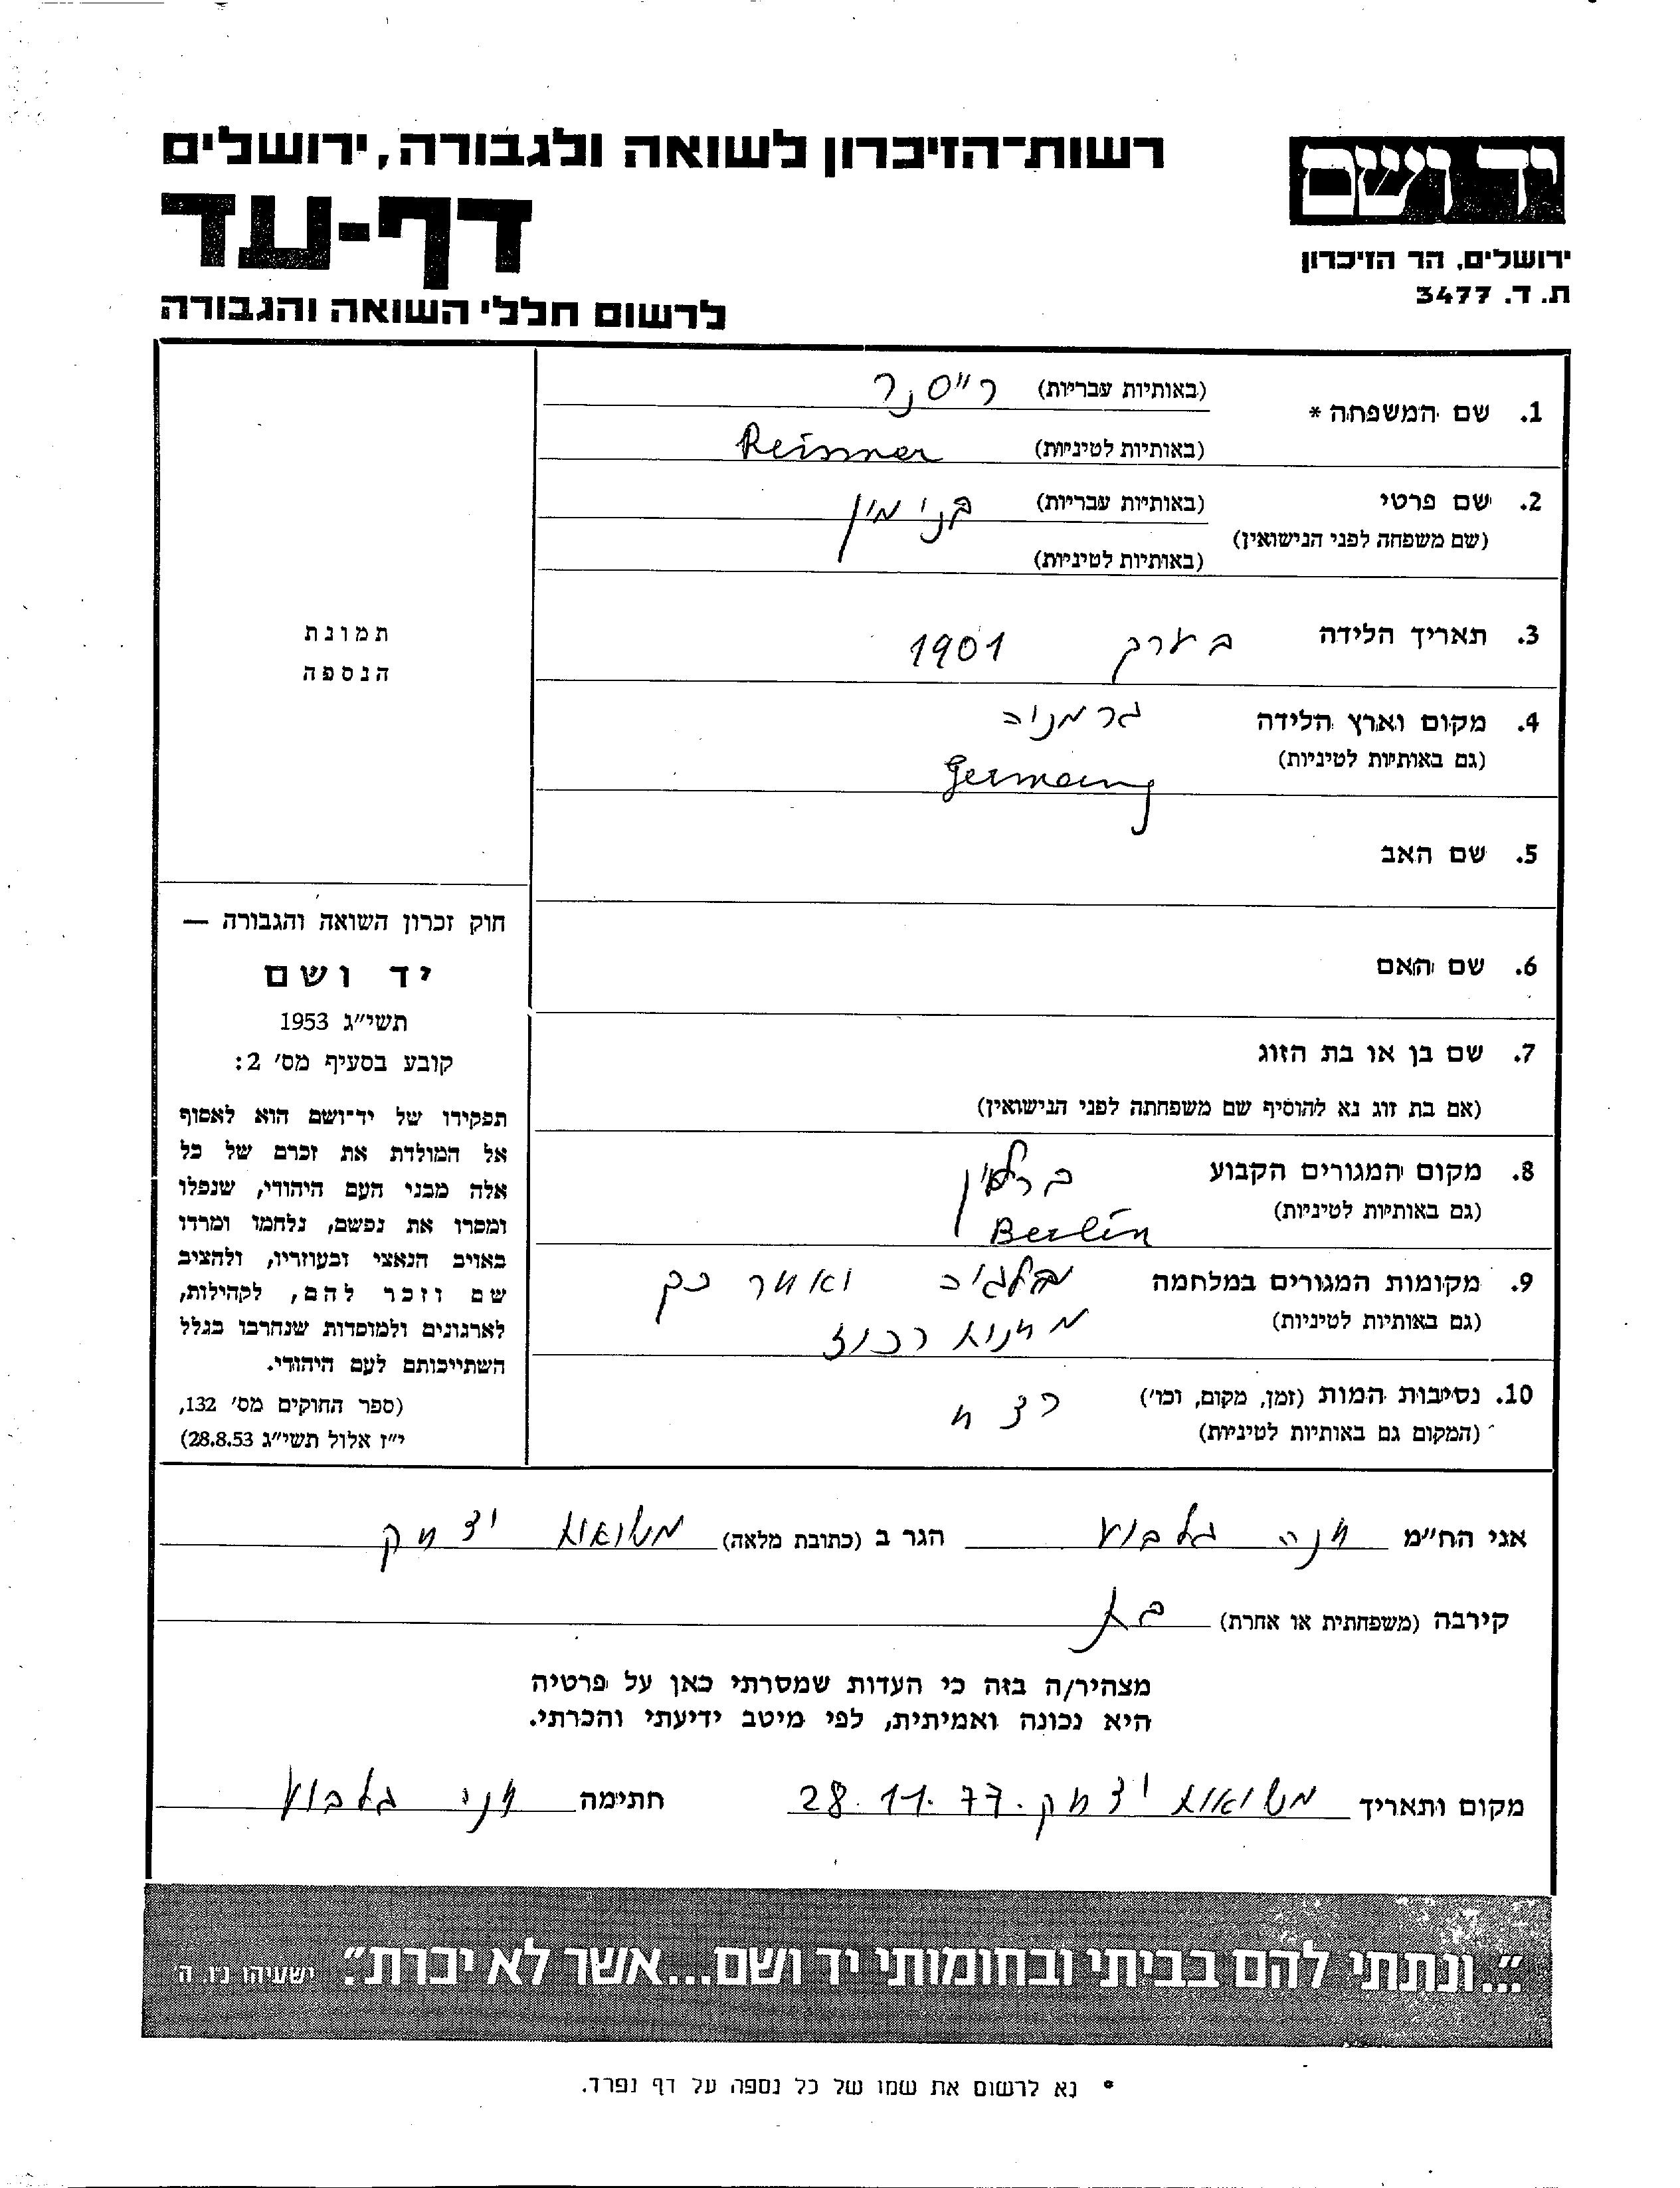 רשות־הזיכרון לשואה ולגבורה, ירושלים
דף-עד
לרשום חללי השואה והגבורה
יד ושם
ירושלים, הר הזיכרון
ת. ד. 3477
1. שם המשפחה * (באותיות עבריות) רייסנר
(באותיות לטיניות) Reissner
2. שם פרטי (באותיות עבריות) בנימין
(שם משפחה לפני הנישואין)
(באותיות לטיניות)
3. תאריך הלידה בערך 1901
4. מקום וארץ הלידה גרמניה
(גם באותיות לטיניות) Germany
5. שם האב
6. שם האם
7. שם בן או בת הזוג
(אם בת זוג נא להוסיף שם משפחתה לפני הנישואין)
8. מקום המגורים הקבוע ברלין
(גם באותיות לטיניות) Berlin
9. מקומות המגורים במלחמה בלגיה ואחר כך
(גם באותיות לטיניות) מחנות רכוז
10. נסיבות המות (זמן, מקום, וכו') רצח
(המקום גם באותיות לטיניות)
תמונת
הנספה
חוק זכרון השואה והגבורה —
יד ושם
תשי"ג 1953
קובע בסעיף מס' 2:
תפקידו של יד־ושם הוא לאסוף
אל המולדת את זכרם של כל
אלה מבני העם היהודי, שנפלו
ומסרו את נפשם, נלחמו ומרדו
באויב הנאצי ובעוזריו, ולהציב
שם וזכר להם, לקהילות,
לארגונים ולמוסדות שנחרבו בגלל
השתייכותם לעם היהודי.
(ספר החוקים מס' 132,
י"ז אלול תשי"ג 28.8.53)
אני הח"מ חנה גלבוע הגר ב (כתובת מלאה) משואות יצחק
קירבה (משפחתית או אחרת) בת
מצהיר/ה בזה כי העדות שמסרתי כאן על פרטיה
היא נכונה ואמיתית, לפי מיטב ידיעתי והכרתי.
מקום ותאריך משואות יצחק. 28.11.77 חתימה חני גלבוע
"...ונתתי להם בביתי ובחומותי יד ושם...אשר לא יכרת". ישעיהו נ"ו, ה'
* נא לרשום את שמו של כל נספה על דף נפרד.